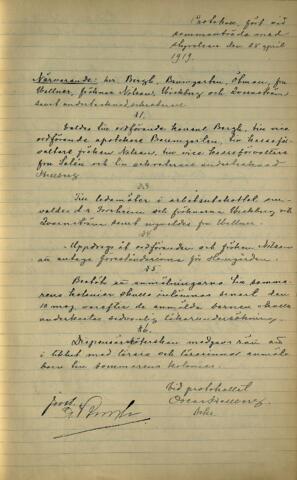 Protokoll, fört vid
sammanträde med
styrelsen den 28 april
1919.
Närvarande: hrr Bergh, Baumgarten, Öhman, fru
Wellner, fröknar Nelson, Wickberg och Lovenström
samt undertecknad sekreterare
§1.
Valdes till ordförande konsul Bergh, till vice
ordförande apotekare Baumgarten, till kasseför-
valtare fröken Nelson, till vice kasseförvaltare
fru Salén och till sekreterare undertecknad
§3.
Till ledamöter i arbetsutskottet om-
valdes d:r Forsheim och fröknarna Wickberg och
samt nyvaldes fru Wellner.
§4.
Uppdrogs åt ordföranden och fröken Nelson
att antaga föreståndarinna för
§5
Beslöts att anmälningarna till somma-
rens kolonier skulle inlämnas senast den
10 maj, varefter de anmälda barnen skulle
underkastas sedvanlig läkareundersökning.
§6.
medgavs rätt att
i likhet med lärare och lärarinnor anmäla
barn till sommarens kolonier.
Vid protokollet
Just.
Oscar
Sekr.